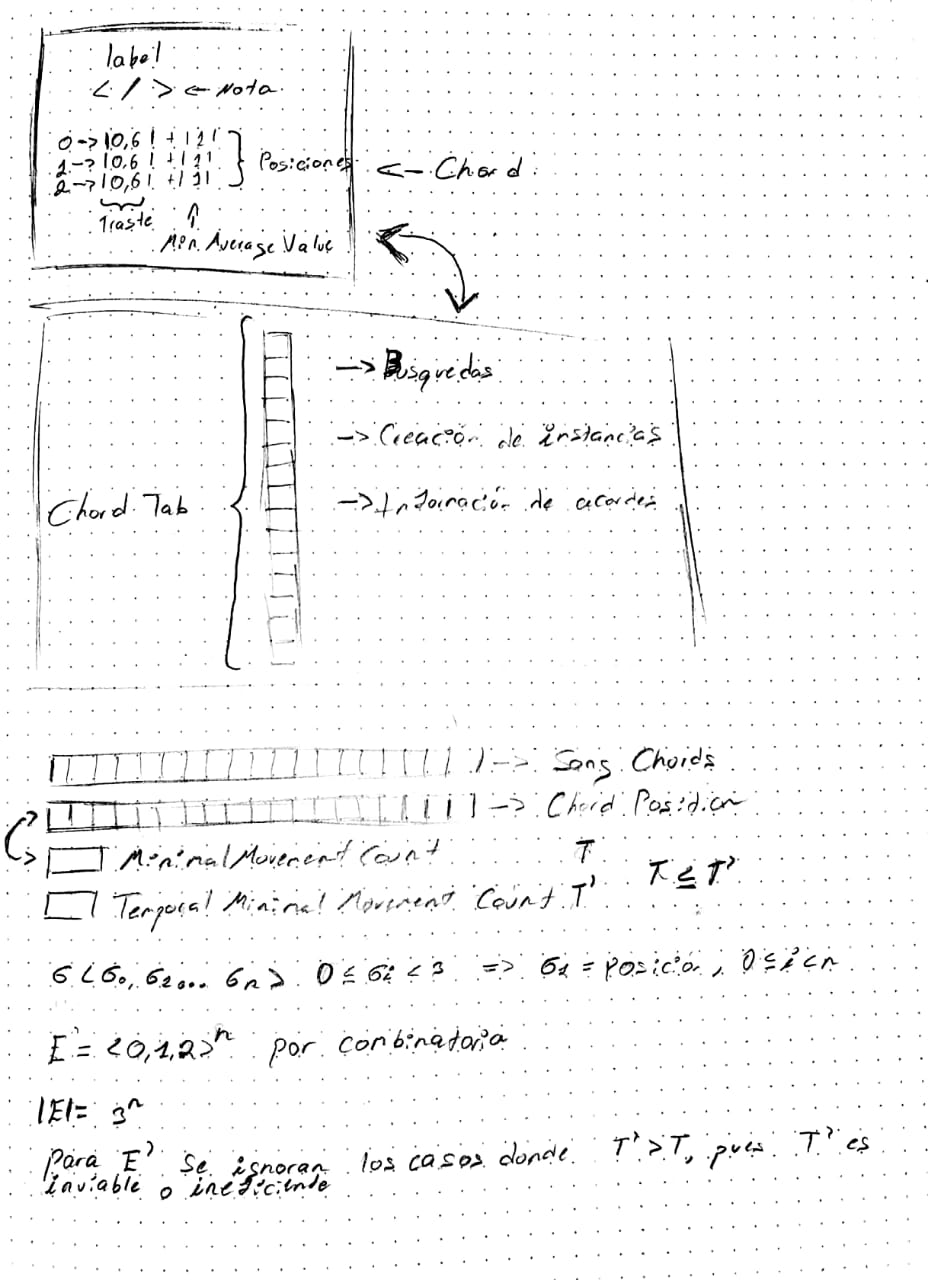 label
< / > ← Nota
0 -> |0,6| + |2|
1 -> |0,6| + |1|
2 -> |0,6| + |1|
Posiciones
<- Chord
Traste
Min. Average Value
-> Busquedas
-> Creación de instancias
Chord Tab
-> Información de acordes
-> Song Chords
-> Chord Position
Minimal Movement Count T
T ≤ T'
Temporal Minimal Movement Count T'
σ < σ₀, σ₁... σn > 0 ≤ σi < 3 => σi = posición, 0 ≤ i < n
E = <0,1,2>ⁿ por combinatoria
|E| = 3ⁿ
Para E' se ignoran los casos donde T' > T, pues T' es
inviable o ineficiente